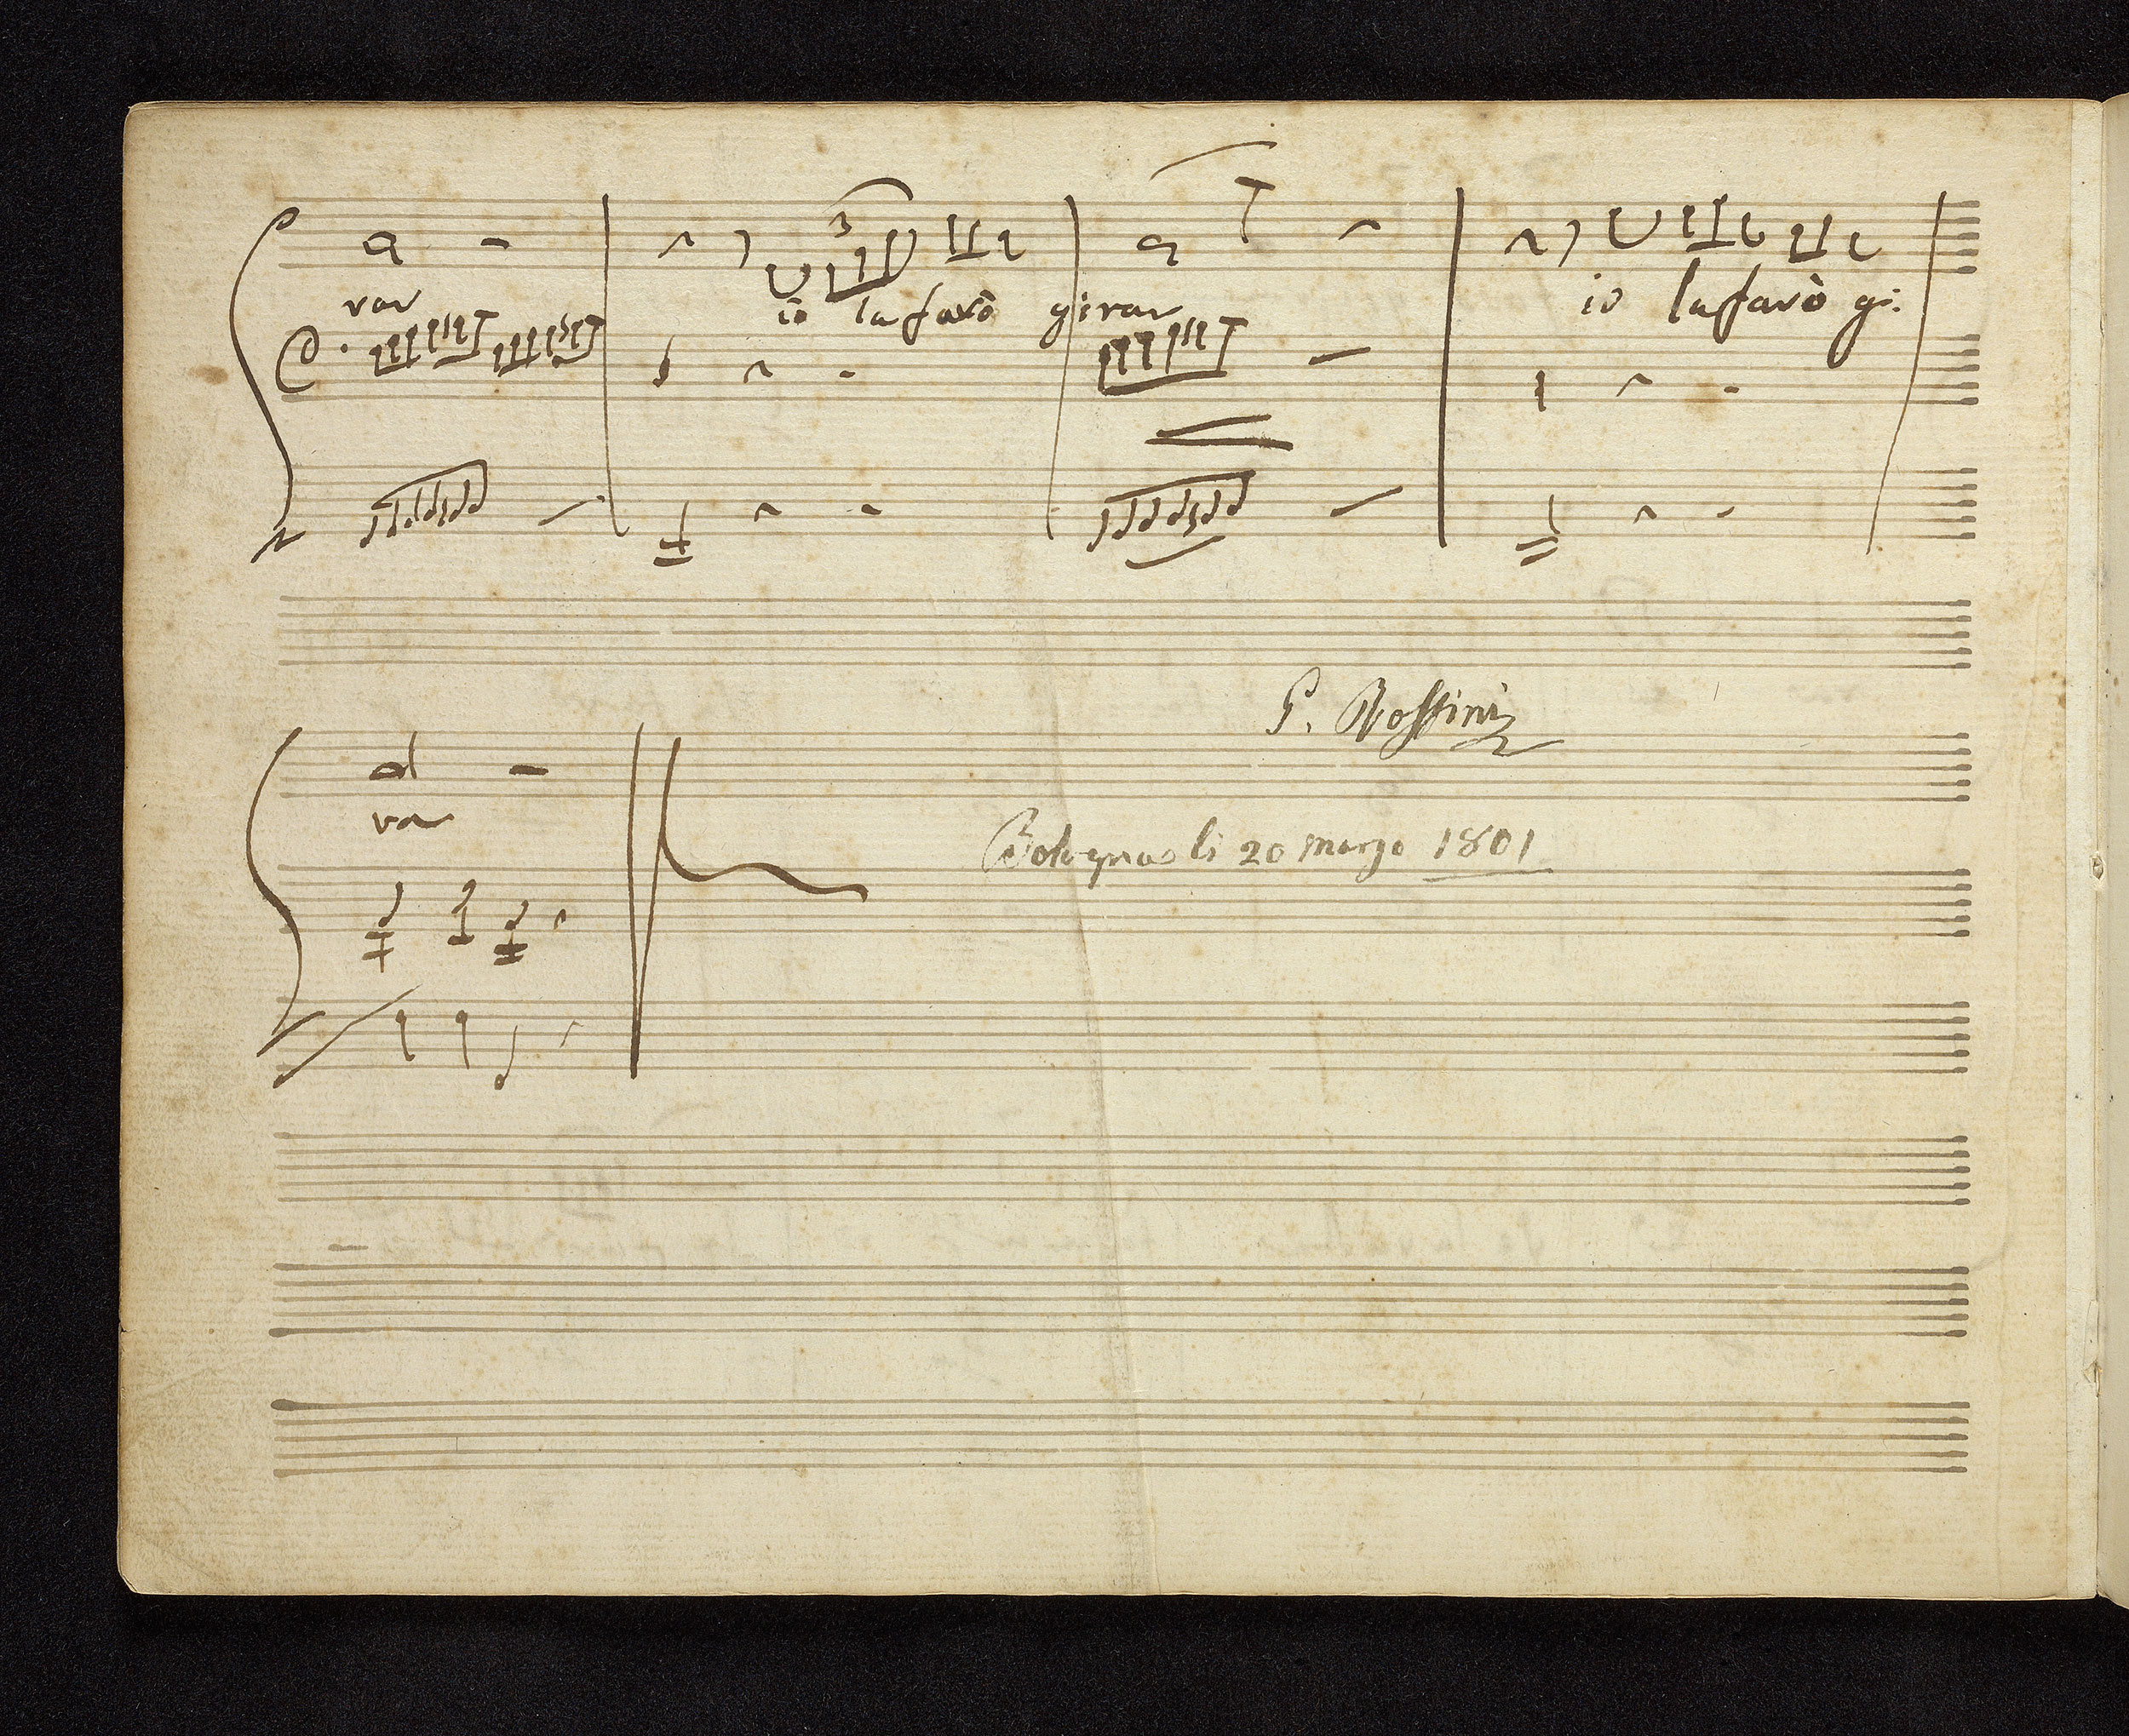 rar io la farò girar io la farò gi:
G. Rossini
ra
Bologna li 20 marzo 1801